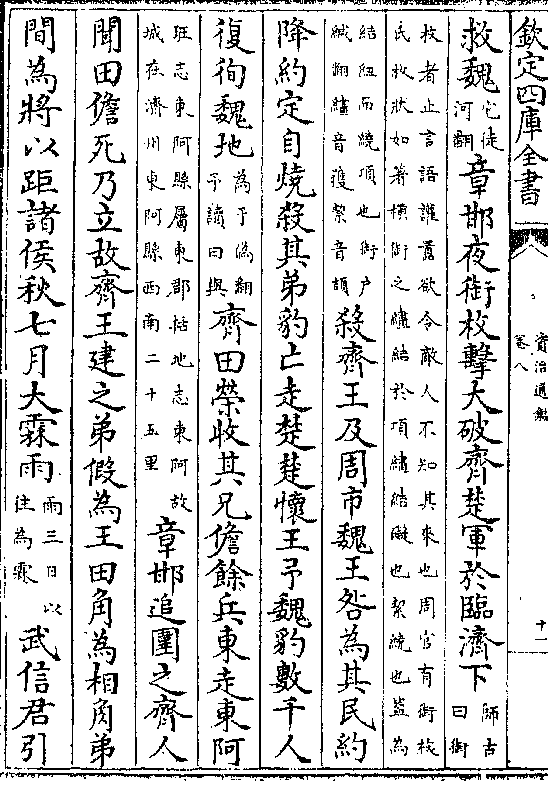 欽定四庫全書
資治通鑑
卷八
十一
救魏它徒河翻章邯夜銜枚擊大破齊楚軍於臨濟下師古曰銜
枚者止言語讙嚻欲令敵人不知其來也周官有銜枚氏枚狀如箸横銜之繣結於項繣結礙也絜繞也蓋為
結紐而繞項也銜户緘翻繣音獲絜音頡殺齊王及周市魏王咎為其民約
降約定自燒殺其弟豹亡走楚楚懷王予魏豹數千人
復徇魏地為于偽翻予讀曰與齊田榮收其兄儋餘兵東走東阿
班志東阿縣屬東郡括地志東阿故城在濟州東阿縣西南二十五里章邯追圍之齊人
聞田儋死乃立故齊王建之弟假為王田角為相角弟
間為將以距諸侯秋七月大霖雨雨三日以往為霖武信君引